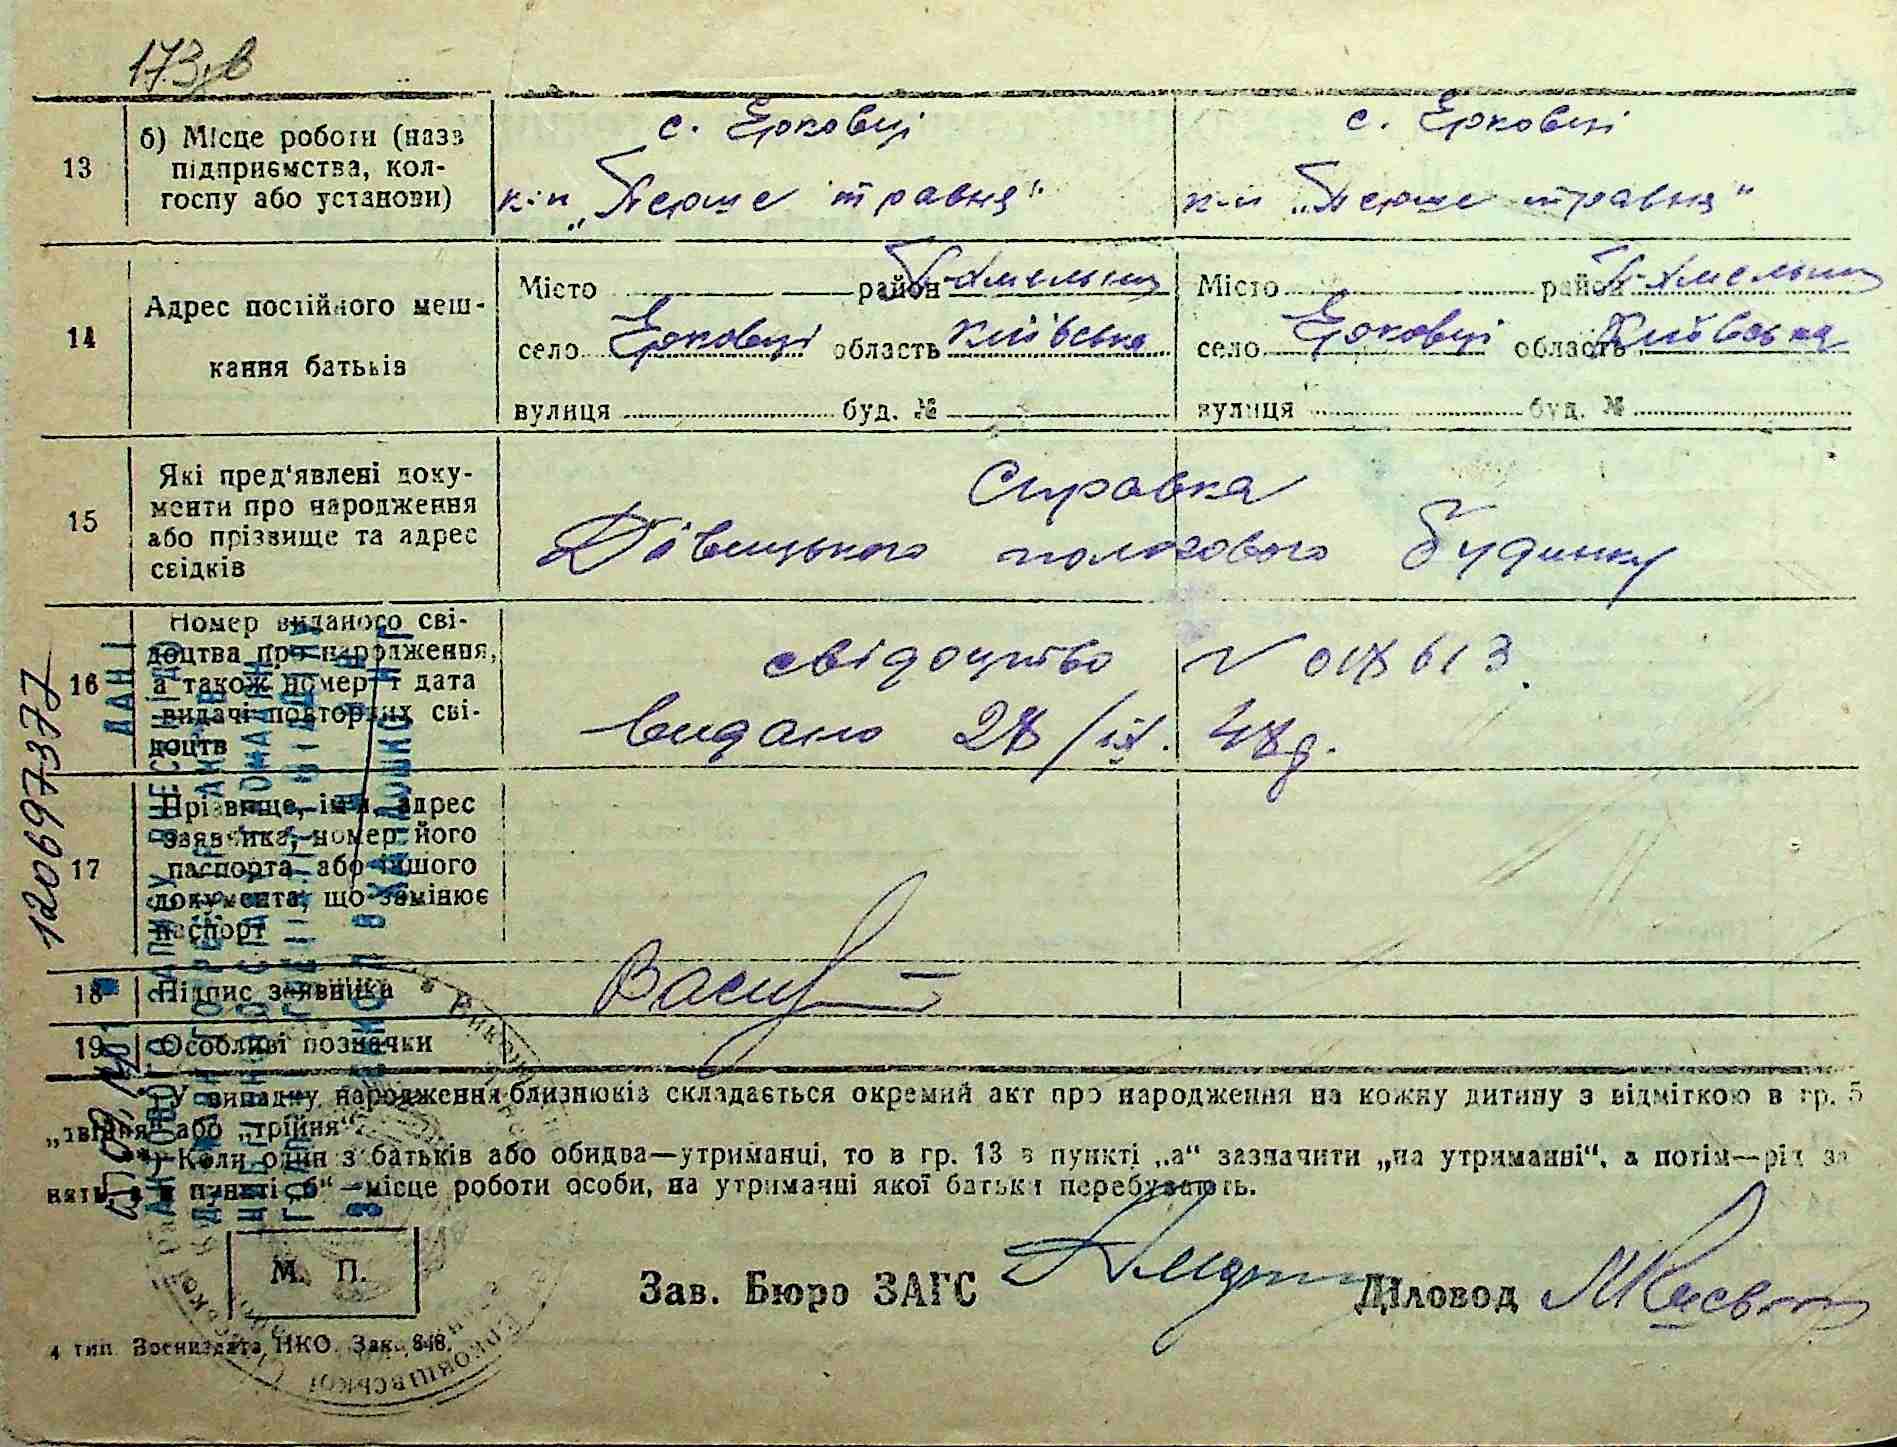 173
13
б) Місце роботи (назв
підприємства, кол-
госпу або установи)
с. Єрковці
к-п „Перше травня“
с. Єрковці
к-п „Перше травня“
14
Адрес постійного меш-
кання батьків
Місто район П-Хмельниц
село Єрковці область Київська
вулиця буд. №
Місто район П-Хмельниц
село Єрковці область Київська
вулиця буд. №
15
Які пред‘явлені доку-
менти про народження
або прізвище та адрес
свідків
Справка
Дівицького пологового будинку
16
Номер виданого сві-
доцтва про народження,
а також номер і дата
видачі повторних сві-
доцтв
свідоцтво N 018613
видано 28/ІХ. 48 р.
17
Прізвище, ім'я, адрес
заявника, номер його
паспорта або іншого
документа, що замінює
паспорт
18
Підпис заявника
19
Особливі позначки
У випадку народження близнюків складається окремий акт про народження на кожну дитину з відміткою в гр. 5
„двійня“ або „трійня“.
**) Коли один з батьків або обидва—утриманці, то в гр. 13 в пункті „а“ зазначити „на утриманні“, а потім—рід за
нять, а в пункті „б“—місце роботи особи, на утриманні якої батьки перебувають.
М. П.
Зав. Бюро ЗАГС
Діловод
4 тип. Воениздата НКО. Зак. 848.
120697377
ДАНІ